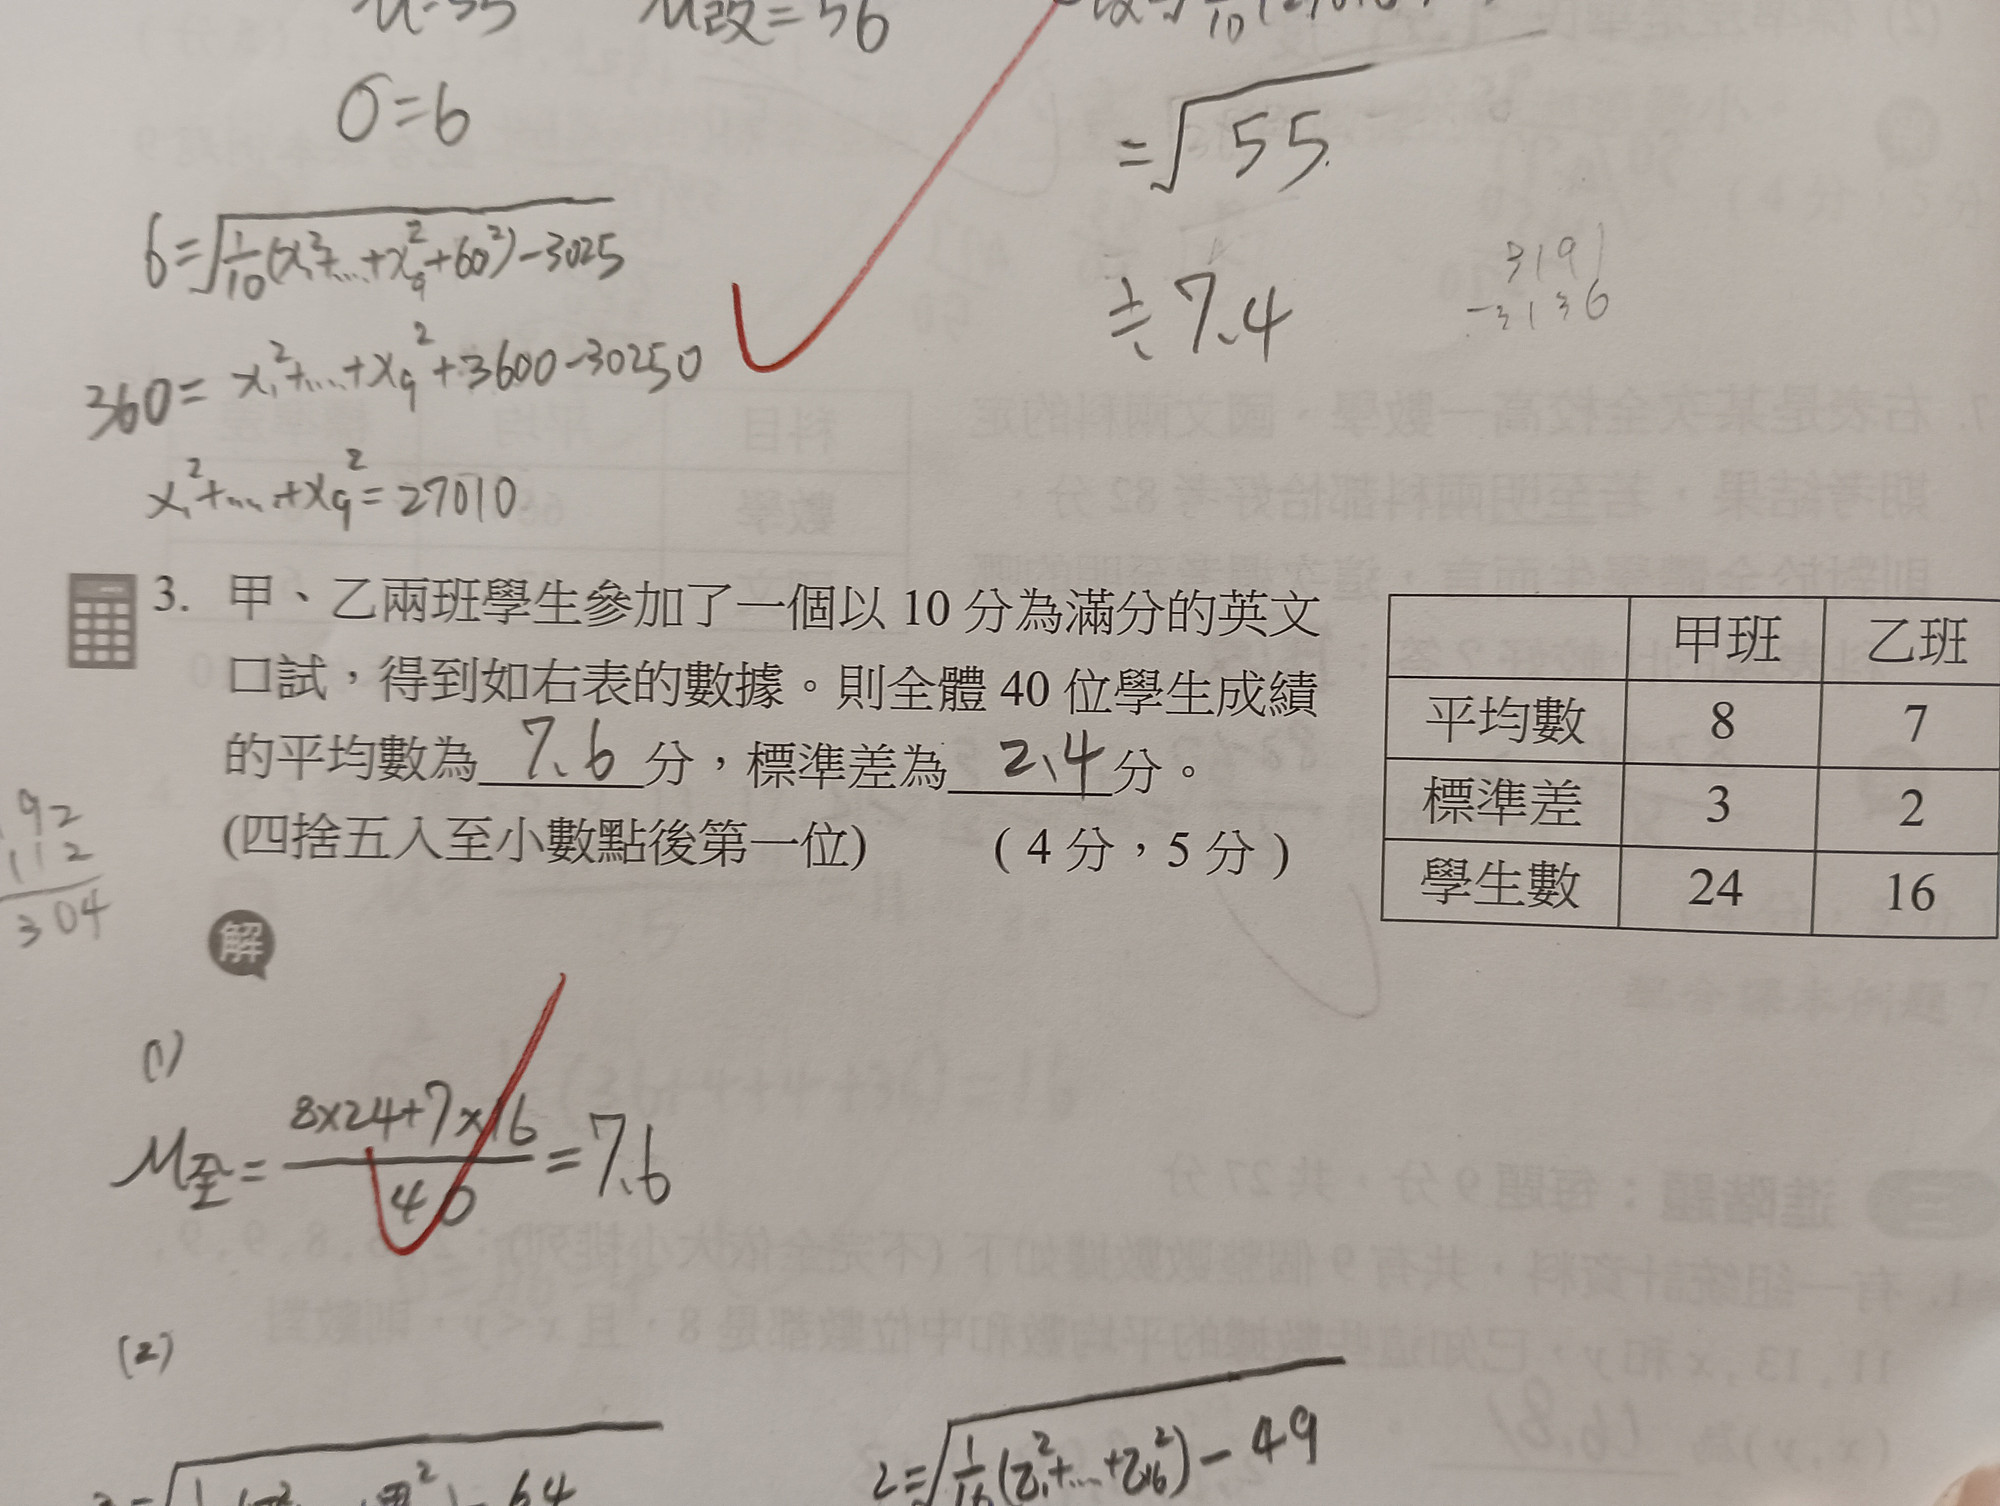 μ=55 μ改=56
σ=6
=√55
6=√1/10(x₁²+...+x₉²+60²)-3025
≒7.4
3191
-3136
360=x₁²+...+x₉²+3600-30250
x₁²+...+x₉²=27010
3. 甲、乙兩班學生參加了一個以 10 分為滿分的英文
口試，得到如右表的數據。則全體 40 位學生成績
的平均數為 7.6 分，標準差為 2.4 分。
(四捨五入至小數點後第一位) (4 分，5 分)
甲班 乙班
平均數 8 7
標準差 3 2
學生數 24 16
192
112
304
解
(1)
μ全=(8×24+7×16)/40=7.6
(2)
2=√1/16(z₁²+...+z₁₆²)-49